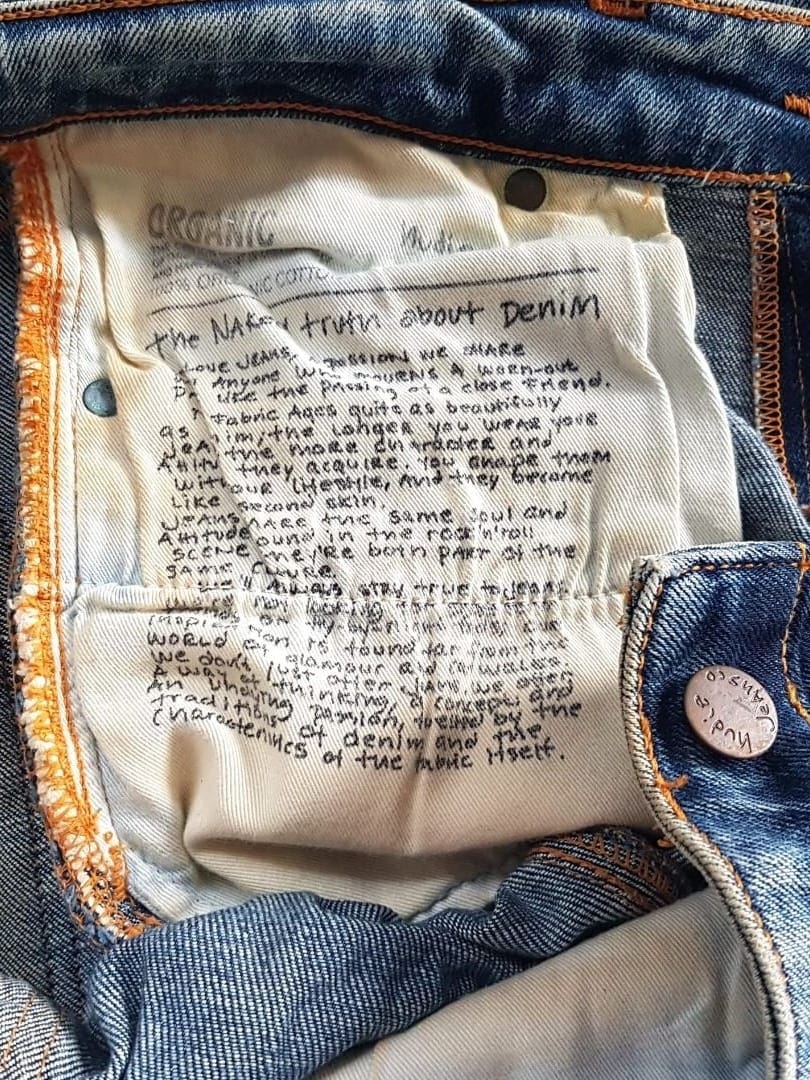 ORGANIC
100% COTTO
the NAKE truth about Denim
Love JEANS, PASSION WE SHARE
Anyone WHO MOURNS A WORN-OUT
LIKE the passing of a close Friend.
Fabric Ages quite as beautifully
as the Longer you wear your
the more character and
they acquire. You shape them
with our Lifestyle, and they become
Like second skin.
JEANS the same soul and
Attitude in the rock'n'roll
scene both PART of the
same
Always stay true to jeans
not looking
is found far from the
WORLD of glamour and
we don't just offer we offer
A way of thinking, a concept and
An undying passion, by the
traditions of denim and the
characteristics of the itself.
nudie
Jeans co